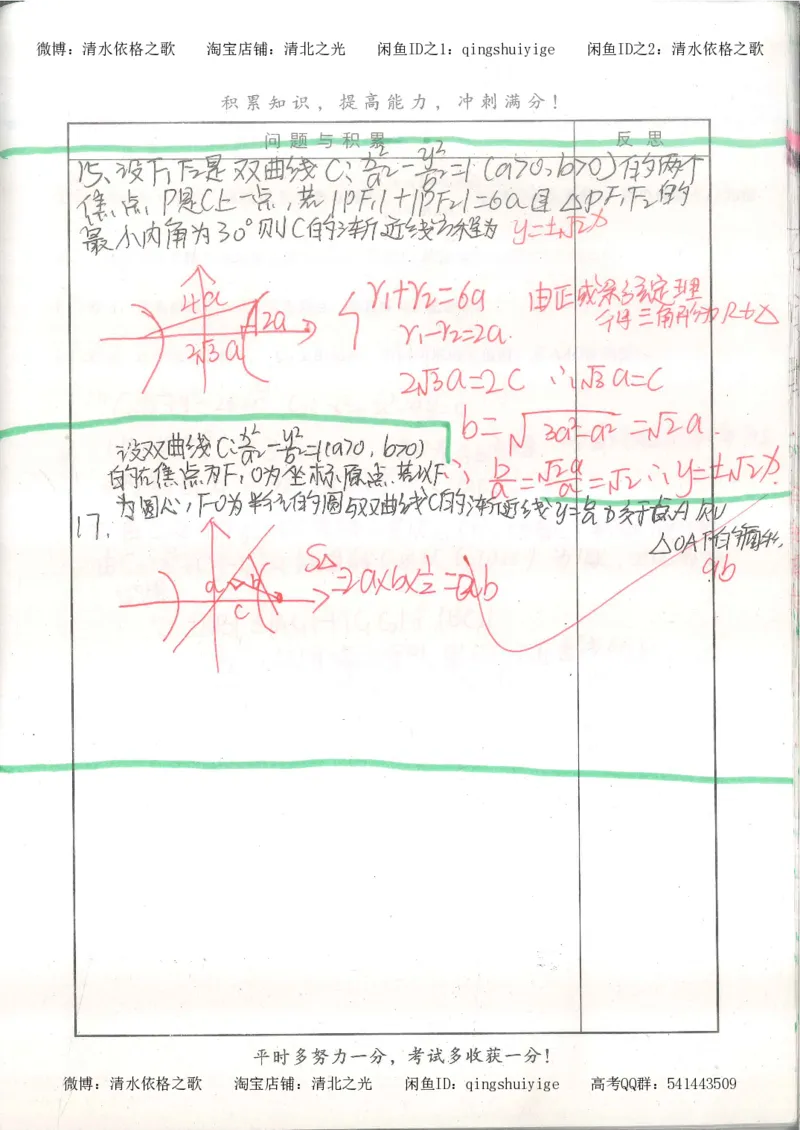 微博：清水依格之歌 淘宝店铺：清北之光 闲鱼ID之1：qingshuiyige 闲鱼ID之2：清水依格之歌
积累知识，提高能力，冲刺满分！
问题与积累 反思
15、设F₁,F₂是双曲线C：x²/a²－y²/b²=1（a>0,b>0）的两个
焦点，P是C上一点，若|PF₁|+|PF₂|=6a且△PF₁F₂的
最小内角为30°则C的渐近线方程为 y=±√2x
4a
2a
2√3a
r₁+r₂=6a
r₁-r₂=2a
由正或余弦定理
得三角形为Rt△
2√3a=2c ∴√3a=c
b=√3a²-a²=√2a
∴b/a=√2a/a=√2∴y=±√2x
17.
设双曲线C：x²/a²－y²/b²=1(a>0,b>0)
的右焦点为F，O为坐标原点，若以F
为圆心，FO为半径的圆与双曲线C的渐近线y=
于点A则
△OAF的面积
ab
a b
c
S△=2a×b×1/2=ab
平时多努力一分，考试多收获一分！
微博：清水依格之歌 淘宝店铺：清北之光 闲鱼ID：qingshuiyige 高考QQ群：541443509